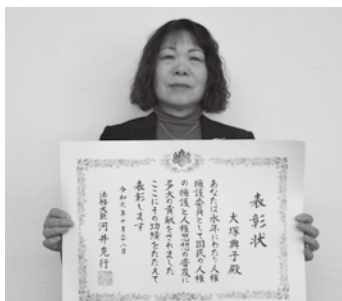 表彰状
大塚典子殿
あなたは永年にわたり人権
擁護委員として国民の人権
の擁護と人権思想の普及に
多大の貢献をされました
ここにその功績をたたえて
表彰します
令和元年十月二十八日
法務大臣 河井克行